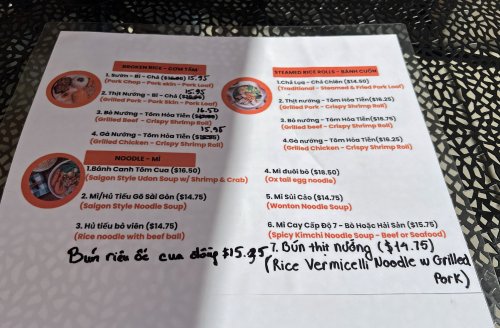 BROKEN RICE - CƠM TẤM
1. Sườn - Bì - Chả 15.95
(Pork Chop - Pork skin - Pork Loaf)
15.95
2. Thịt Nướng - Bì - Chả
(Grilled Pork - Pork Skin - Pork Loaf)
16.50
3. Bò Nướng - Tôm Hỏa Tiễn
(Grilled Beef - Crispy Shrimp Roll)
15.95
4. Gà Nướng - Tôm Hỏa Tiễn
(Grilled Chicken - Crispy Shrimp Roll)
NOODLE - MÌ
1.Bánh Canh Tôm Cua ($16.50)
(Saigon Style Udon Soup w/ Shrimp & Crab)
2. Mì/Hủ Tiếu Gõ Sài Gòn ($14.75)
(Saigon Style Noodle Soup)
3. Hủ tiếu bò viên ($14.75)
(Rice noodle with beef ball)
Bún riêu ốc cua đồng $15.95
STEAMED RICE ROLLS - BÁNH CUỐN
1.Chả Lụa - Chả Chiên ($14.50)
(Traditional - Steamed & Fried Pork Loaf)
2. Thịt nướng - Tôm Hỏa Tiễn($16.25)
(Grilled Pork - Crispy Shrimp Roll)
3. Bò nướng - Tôm Hỏa Tiễn($16.75)
(Grilled beef - Crispy Shrimp Roll)
4.Gà nướng - Tôm Hỏa Tiễn($16.25)
(Grilled Chicken - Crispy Shrimp Roll)
4. Mì đuôi bò ($18.50)
(Ox tail egg noodle)
5. Mì Sủi Cảo ($14.75)
(Wonton Noodle Soup)
6. Mì Cay Cấp Độ 7 - Bò Hoặc Hải Sản ($15.75)
(Spicy Kimchi Noodle Soup - Beef or Seafood)
7. Bún thịt nướng ($14.75)
(Rice Vermicelli Noodle w Grilled
Pork)